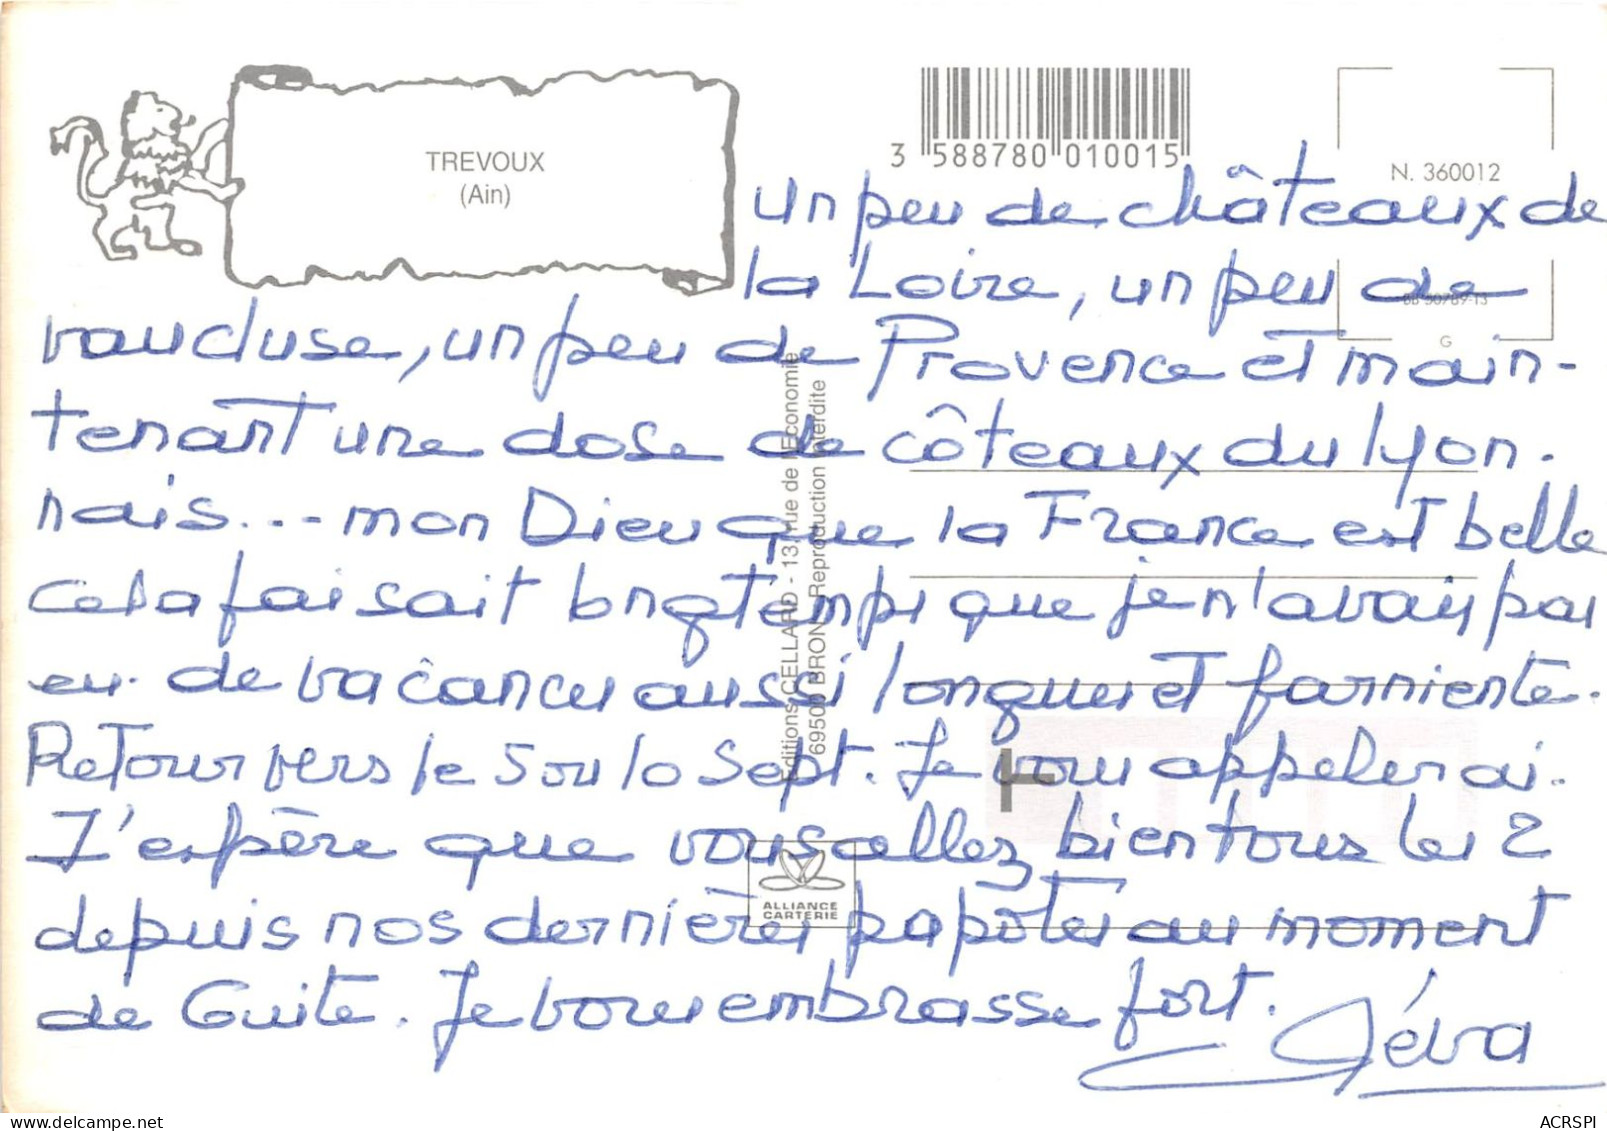 TREVOUX
(Ain)
3 588780 010015
N. 360012
BB 50789-13
G
Editions CELLARD - 13, rue de l'Economie
69500 BRON - Reproduction interdite
ALLIANCE
CARTERIE
un peu de châteaux de
la Loire, un peu de
vaucluse, un peu de Provence et main-
tenant une dose de côteaux du lyon-
nais... mon Dieu que la France est belle
cela faisait longtemps que je n'avais pas
eu de vacances aussi longues et farniente.
Retour vers le 5 ou 10 Sept. Je vous appelerai.
J'espère que vous allez bien tous les 2
depuis nos dernières papotes au moment
de Guite. Je vous embrasse fort.
ACRSPI